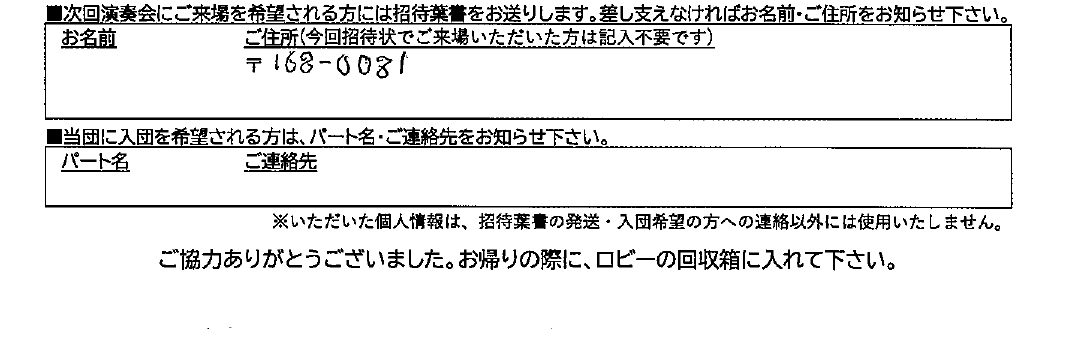 ■次回演奏会にご来場を希望される方には招待葉書をお送りします。差し支えなければお名前・ご住所をお知らせ下さい。
お名前 ご住所(今回招待状でご来場いただいた方は記入不要です)
〒168-0081
■当団に入団を希望される方は、パート名・ご連絡先をお知らせ下さい。
パート名 ご連絡先
※いただいた個人情報は、招待葉書の発送・入団希望の方への連絡以外には使用いたしません。
ご協力ありがとうございました。お帰りの際に、ロビーの回収箱に入れて下さい。